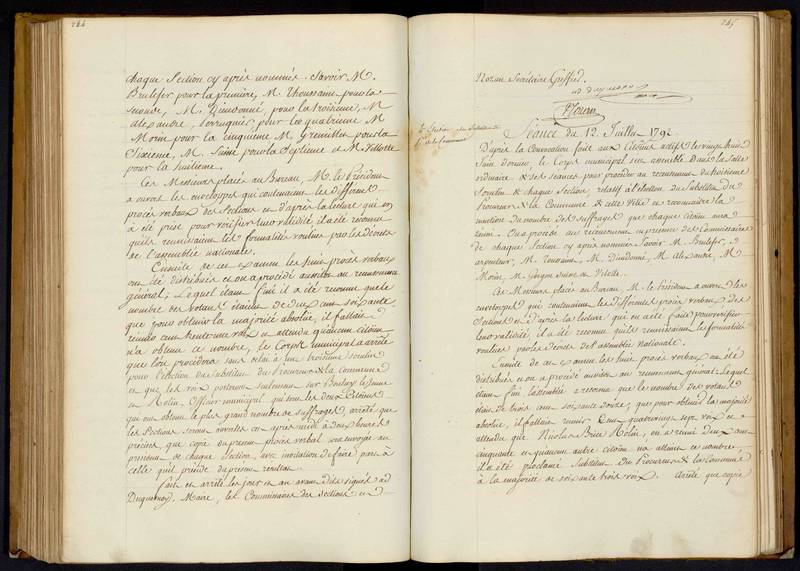 244
chaque Section cy après nommés. Savoir M.
Brulfer pour la première, M. Thoussaint pour la
seconde, M. Dieudonné, pour la troisieme, M
alexandre, pour la quatrieme M
Morin pour la cinquieme M. Grenillet pour la
Sixieme, M. Suisse pour la Septieme et M Villotte
pour la huitieme.
Ces Messieurs placés au Bureau, M. le Président
a ouvert les enveloppes qui contenaient les différens
procès verbaux des Sections et d'après la lecture qui en
a été prise pour vérifier leur validité, il a été reconnu
qu'ils reunissaient les formalités voulues par les décrets
de l'assemblée nationale.
Ensuite de cet examen les huit procès verbaux
ont été distribués et on a procédé aussitot au recensement
général; Lequel étant fini il a été reconnu que le
nombre des votans étaient de deux cent soixante,
que pour obtenir la majorité absolue, il fallait
reunir cent trente une voix et attendu qu'aucun citoïen
n'a obtenu ce nombre, le Corps municipal a arrêté
que l'on procédera sans délai à une troisieme scrutin
pour l'élection du Substitut du Procureur de la Commune
et que les voix porteront seulement sur Boulay le Jeune
et Molin, Officier municipal qui sont les deux Citoïens
qui ont obtenu le plus grand nombre de suffrages, arrête que
les Sections seront ouvertes cet après midi à deux heures
précises, que copie du present procès verbal sera envoyée au
president de chaque Section, avec invitation de faire part à
celle qu'il préside du present resultat.
fait et arrêté les jour et an avant dits signés ad
Duquesnoy, Maire, les Commissaires des Sections et
245
Nozan Secrétaire Greffier.
ad duquesnoy
Séance du 12. Juillet 1792
D'après la Convocation faite aux Citoïens actifs le vingt huit
Juin dernier, le Corps municipal s'est assemblé Dans la Salle
ordinaire de ses séances pour procéder au recensement du troisieme
Scrutin de chaque Section, relatif à l'élection du Substitut du
Procureur de la Commune de cette Ville et reconnaitre la
mention du nombre des suffrages que chaque citoïen aura
reuni. On a procédé au recensement en presence des Commissaires
de chaque Section cy après nommés Savoir M. Brulfer,
arpenteur, M. Toussaint, M. Dieudonné, M. alexandre, M
Morin, M. Suisse et Vilotte.
Ces Messieurs placés au Bureau, M. le Président a ouvert les
enveloppes qui contenaient les différents procès verbaux des
Sections et d'après la lecture qui en a été faite pour vérifier
leur validité, il a été reconnu qu'ils reunissaient les formalités
voulues par les décrets de l'assemblée nationale.
Ensuite de cet examen les huit procès verbaux ont été
distribués et on a procédé aussitot au recensement général. Lequel
étant fini l'assemblée a reconnu que le nombre des votans
était de trois cent soixante douze, que pour obtenir la majorité
absolue, il fallait reunir Cent quatre vingt sept voix et
attendu que Nicolas Brice Molin, en a reuni deux cent
cinquante et qu'aucun autre citoïen n'a atteint ce nombre,
il a été proclamé Substitut du Procureur de la Commune
à la majorité de soixante trois voix. Arrête que copie